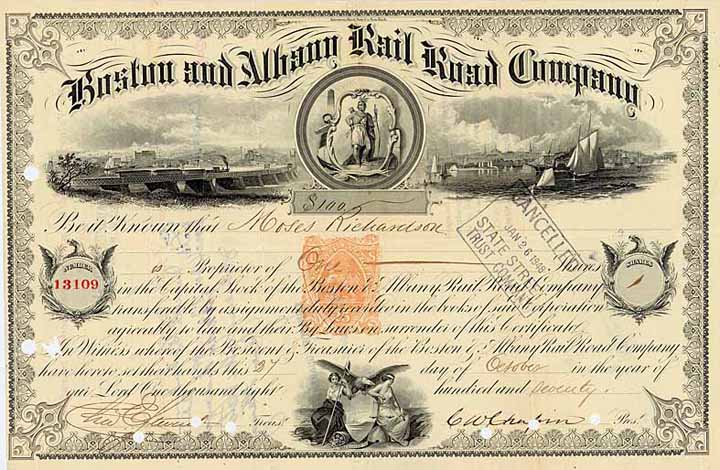 Boston and Albany Rail Road Company
$100
Be it Known that Moses Richardson
is Proprietor of One Shares
in the Capital Stock of the Boston & Albany Rail Road Company
transferable by assignment duly entered in the books of said Corporation
agreeably to law and their By Laws on surrender of this Certificate.
In Witness whereof the President & Treasurer of the Boston & Albany Rail Road Company
have hereto set their hands this 27 day of October in the year of
our Lord One thousand eight hundred and Seventy.
Treasr.
C W Chapin Prest.
NUMBER
13109
SHARES
1
CANCELLED
JAN 26 1948
STATE STREET
TRUST COMPANY